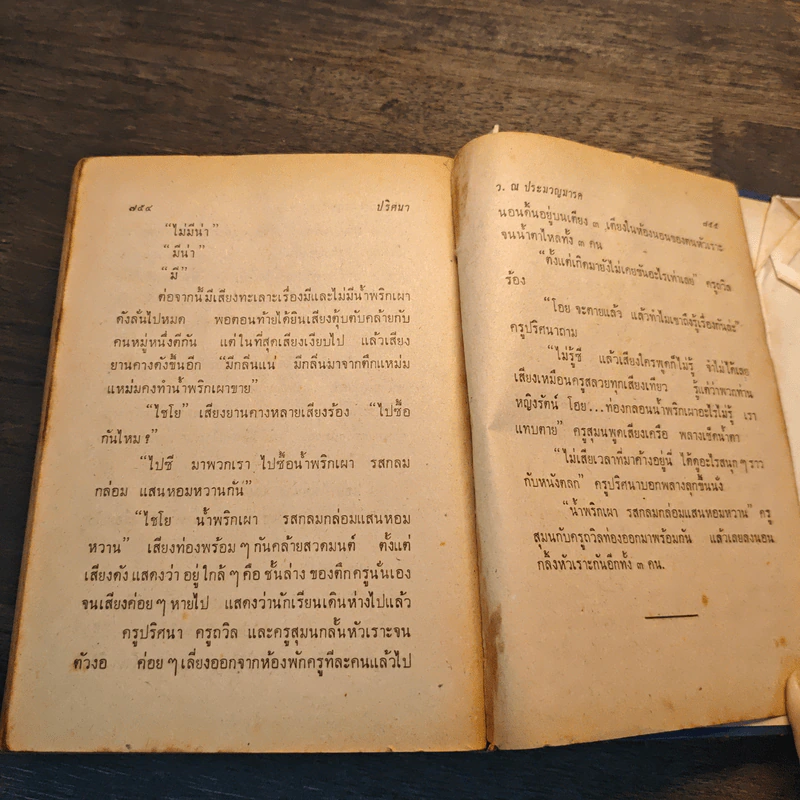 ๗๕๔ ปริศนา
“ไม่มีน่า”
“มีน่า”
“มี”
ต่อจากนี้มีเสียงทะเลาะเรื่องมีและไม่มีน้ำพริกเผา
ดังลั่นไปหมด พอตอนท้ายได้ยินเสียงตุ้บตั้บคล้ายกับ
คนหมู่หนึ่งตีกัน แต่ในที่สุดเสียงเงียบไป แล้วเสียง
ยานคางดังขึ้นอีก “มีกลิ่นแน่ มีกลิ่นมาจากตึกแหม่ม
แหม่มคงทำน้ำพริกเผาขาย”
“ไชโย” เสียงยานคางหลายเสียงร้อง “ไปซื้อ
กันไหม ?”
“ไปซี มาพวกเรา ไปซื้อน้ำพริกเผา รสกลม
กล่อม แสนหอมหวานกัน”
“ไชโย น้ำพริกเผา รสกลมกล่อมแสนหอม
หวาน” เสียงท่องพร้อม ๆ กันคล้ายสวดมนต์ ตั้งแต่
เสียงดัง แสดงว่า อยู่ใกล้ ๆ คือ ชั้นล่าง ของตึกครูนั่นเอง
จนเสียงค่อย ๆ หายไป แสดงว่านักเรียนเดินห่างไปแล้ว
ครูปริศนา ครูถวิล และครูสุมนกลั้นหัวเราะจน
ตัวงอ ค่อย ๆ เลี่ยงออกจากห้องพักครูทีละคนแล้วไป
ว. ณ ประมวญมารค ๘๕๕
นอนดิ้นอยู่บนเตียง ๓ เตียงในห้องนอนของตนหัวเราะ
จนน้ำตาไหลทั้ง ๓ คน
“ตั้งแต่เกิดมายังไม่เคยขันอะไรเท่าเลย” ครูถวิล
ร้อง
“โอย จะตายแล้ว แล้วทำไมเขาถึงรู้เรื่องกันล่ะ”
ครูปริศนาถาม
“ไม่รู้ซี แล้วเสียงใครพูดก็ไม่รู้ จำไม่ได้เลย
เสียงเหมือนครูสลวยทุกเสียงเทียว รู้แต่ว่าพวกท่าน
หญิงรัตน์ โอย...ท่องกลอนน้ำพริกเผาอะไรไม่รู้ เรา
แทบตาย” ครูสุมนพูดเสียงเครือ พลางเช็ดน้ำตา
“ไม่เสียเวลาที่มาค้างอยู่นี่ ได้ดูอะไรสนุก ๆ ราว
กับหนังตลก” ครูปริศนาบอกพลางลุกขึ้นนั่ง
“น้ำพริกเผา รสกลมกล่อมแสนหอมหวาน” ครู
สุมนกับครูถวิลท่องออกมาพร้อมกัน แล้วเลยลงนอน
กลิ้งหัวเราะกันอีกทั้ง ๓ คน.